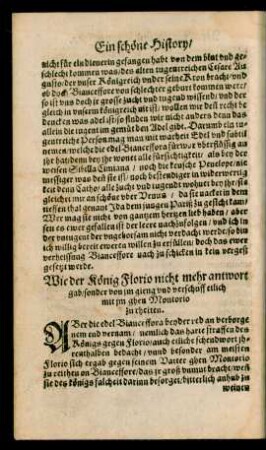 Ein schöne History/
nicht für ein dienerin gefangen habe von dem blut vnd ge-
schlecht kommen was/ des alten tugentreichen Cesare Au-
gusto/ der vnser Königreich vnder seine Kron bracht/ vnd
ob doch Bianceffore von schlechter geburt kommen were/
so ist vns doch jr grosse zucht vnd tugend wissend/ vnd der
gleich in vnserm königreich nit ist/ wöllen wir dest recht be
dencken was adel ist/ so finden wir nicht anders denn das
allein die tugent im gemüt den Adel gibt. Darumb ein tu-
gentreiche Person mag man mit warheit Edel vnd subtil
nennen/ welche die edel Bianceffora für war vberflüssig an
jhr hat/ denn bey jhr wonet alle fürsichtigkeit/ als bey der
weisen Sibilla Cumana/ noch die keusche Penelope/ nit
messiger was deñ sie ist/ noch bestendiger in widerwertig
keit denn Catho/ alle zucht vnd tugendt wohnet bey jhr/ sie
gleichet mit an schöne vber Venus/ da sie nacket in dem
tieffen thal genant Ida dem jungen Pariß zu gesicht kam/
Wer mag sie nicht von gantzem hertzen lieb haben/ aber
so es ewer gefallen ist der leeer nachzufolgen/ vnd ich in
der vnjugent der vngehorsam nicht verdacht werde/ so bin
ich willig bereit ewern willen zu erfüllen/ doch das ewer
verheissung Bianceffore nach zu schicken in kein vergeß
gesetzt werde.
Wie der König Florio nicht mehr antwort
gab/ sonder von jm gieng vnd verschuff eilich
mit jm ghen Montorio
zu rheiten.
ABer die edel Bianceffora beyder red an verborge
nem end vernam/ nemlich das harte straffen des
Königs gegen Florio/ auch etliche scheindwort jh-
renthalben bedacht/ vnnd besonder am meisten
Florio sich ergab gegen seinem Vatter ghen Montorio
zu reithen on Bianceffore/ das jr groß vnmut bracht/ weil
sie des königs falscheit darinn besorget/ bitterlich anhub zu
weinen